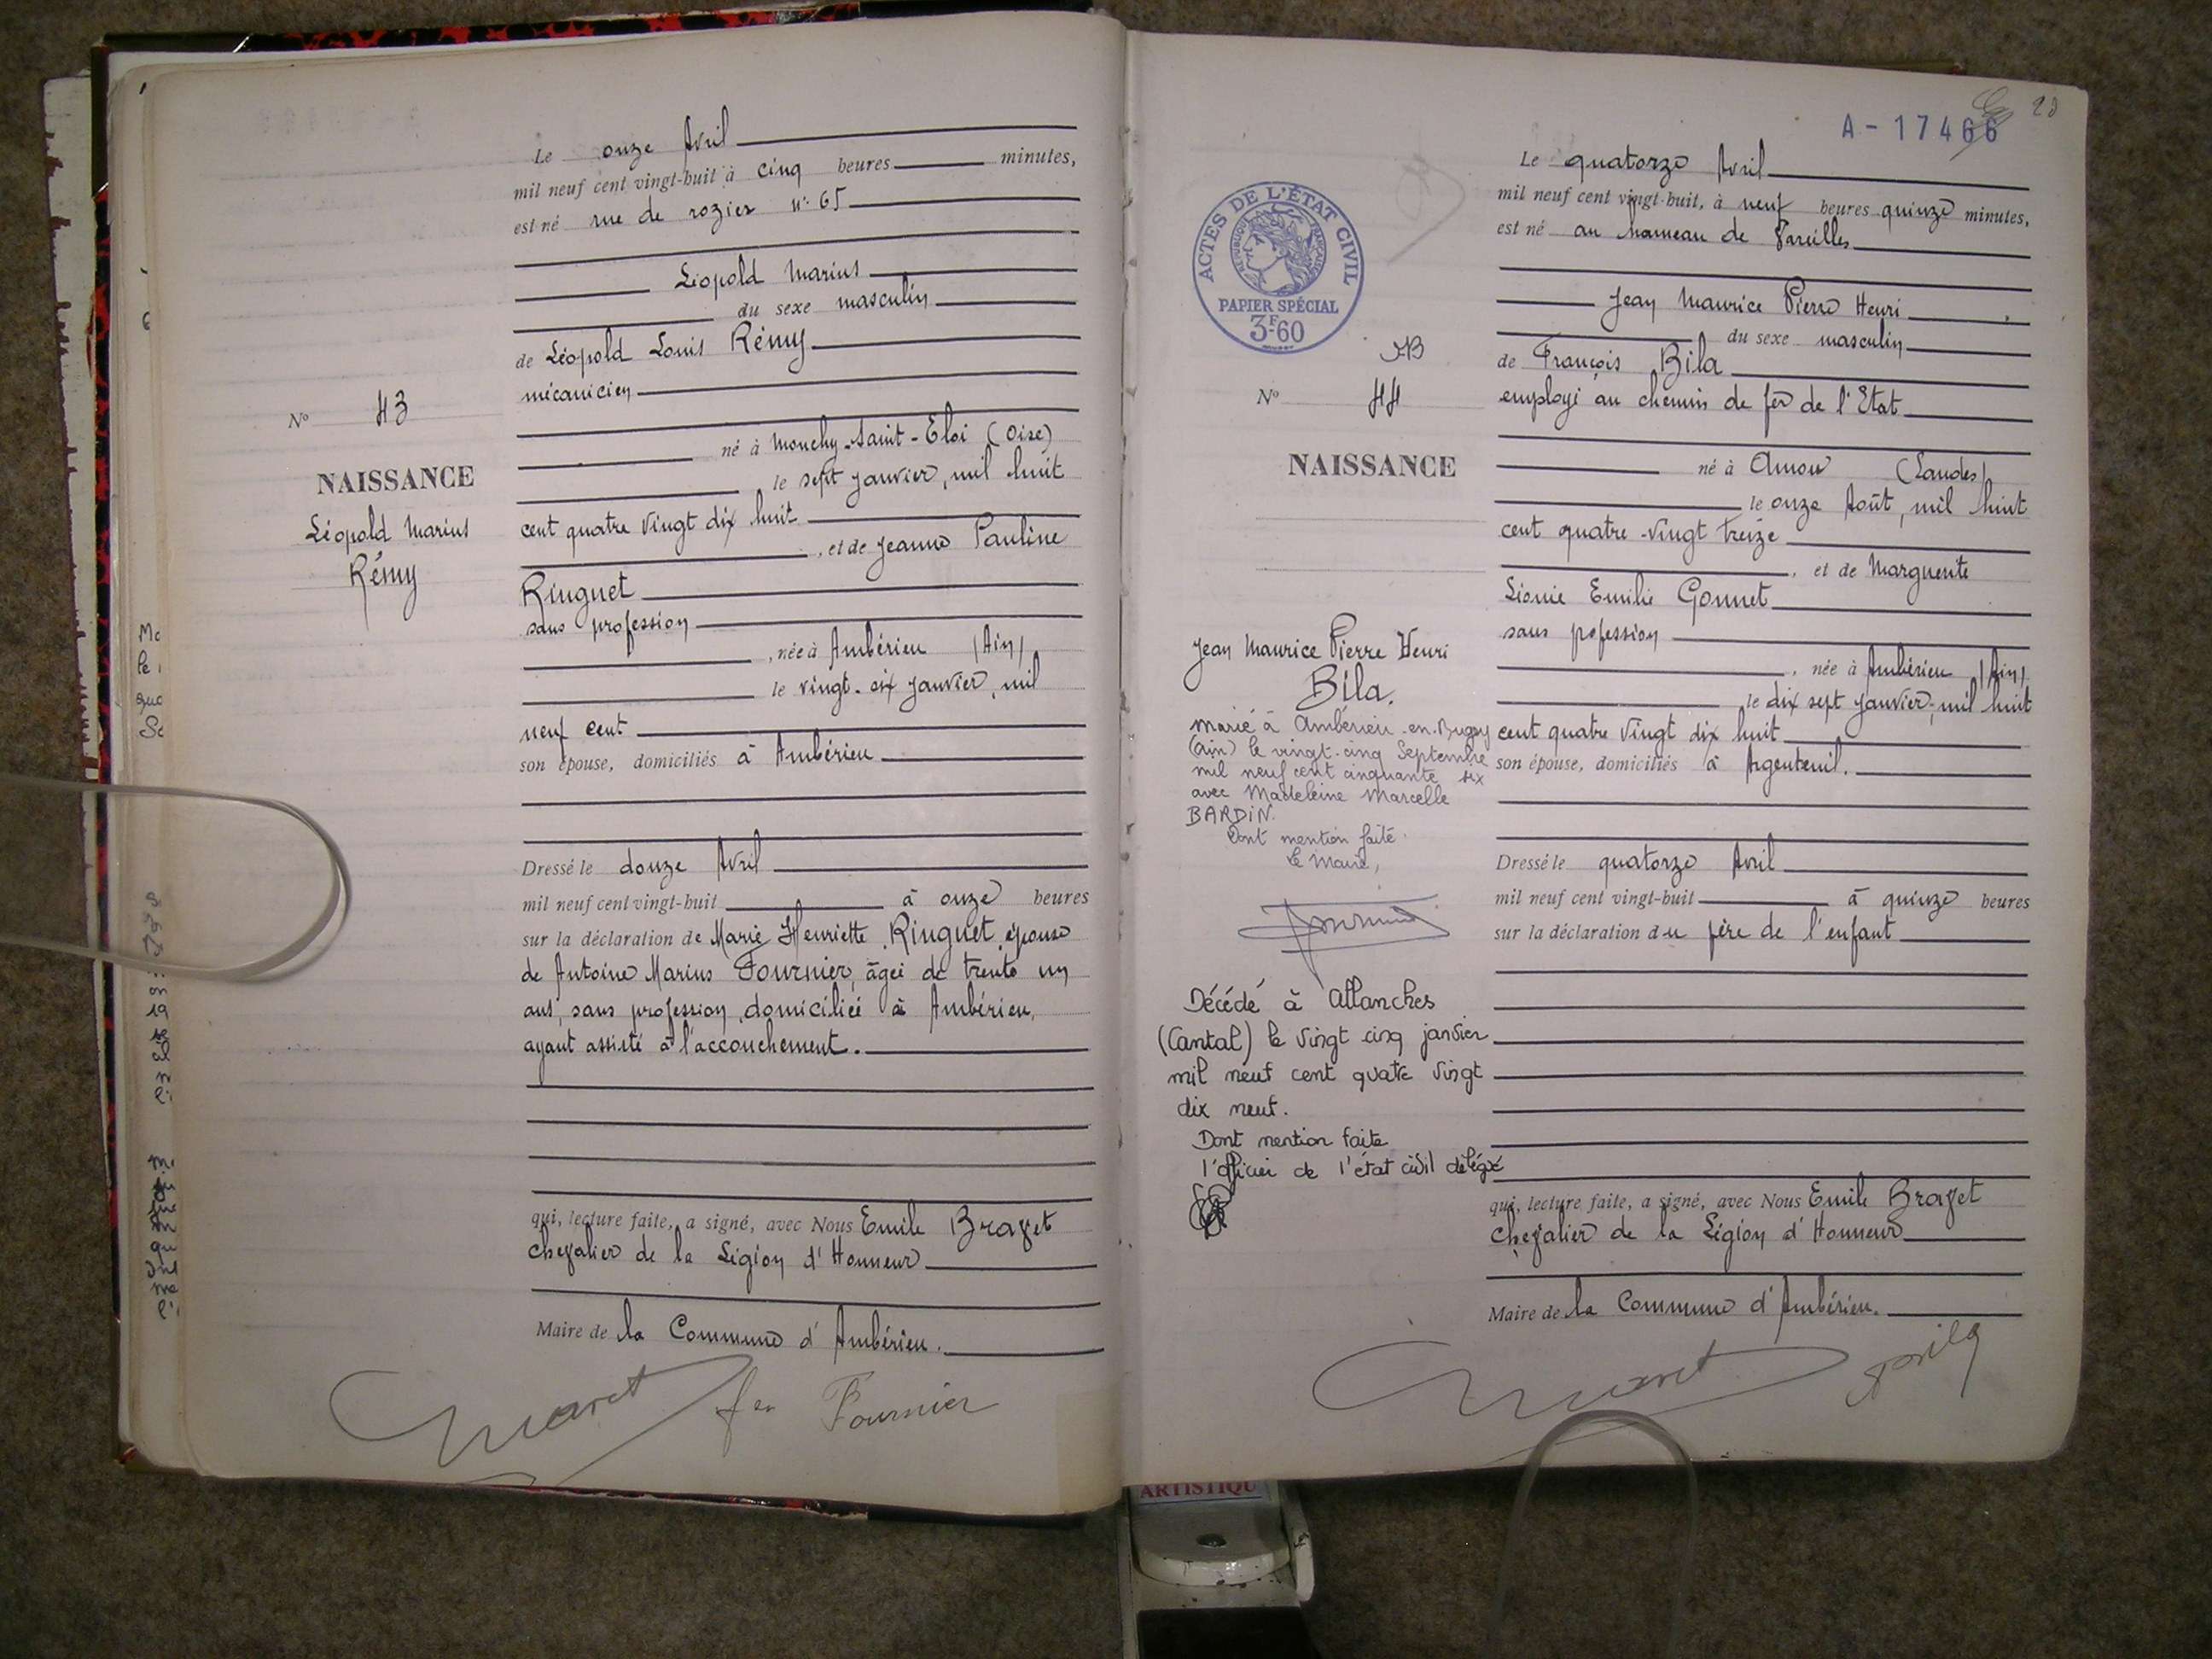 Le onze Avril
mil neuf cent vingt-huit à cinq heures minutes,
est né rue de rozier n° 65
Léopold Marius
du sexe masculin
de Léopold Louis Rémy
mécanicien
né à Monchy-Saint-Eloi (Oise)
le sept janvier, mil huit
cent quatre vingt dix huit
, et de Jeanne Pauline
Ringuet
sans profession
, née à Ambérieu (Ain)
le vingt-six janvier, mil
neuf cent
son épouse, domiciliés à Ambérieu
Dressé le douze Avril
mil neuf cent vingt-huit à onze heures
sur la déclaration de Marie Henriette Ringuet, épouse
de Antoine Marius Fournier, âgée de trente un
ans, sans profession, domiciliée à Ambérieu,
ayant assisté à l'accouchement.
qui, lecture faite, a signé, avec Nous Emile Bravet
chevalier de la Légion d'Honneur
Maire de la Commune d'Ambérieu.
fe Fournier
N° 43
NAISSANCE
Léopold Marius
Rémy
A-17466
28
ACTES DE L'ÉTAT CIVIL
RÉPUBLIQUE FRANÇAISE
PAPIER SPÉCIAL
3F-60
N° 44
NAISSANCE
Jean Maurice Pierre Henri
Bila.
Marié à Ambérieu-en-Bugey
(Ain) le vingt-cinq Septembre
mil neuf cent cinquante six
avec Madeleine Marcelle
BARDIN.
Dont mention faite.
Le Maire,
Décédé à Allanches
(Cantal) le vingt cinq janvier
mil neuf cent quatre vingt
dix neuf.
Dont mention faite
l'officier de l'état civil délégué
Le quatorze Avril
mil neuf cent vingt-huit, à neuf heures quinze minutes,
est né au hameau de Vareilles
Jean Maurice Pierre Henri
du sexe masculin
de François Bila
employé au chemin de fer de l'Etat
né à Amou (Landes)
le onze Août, mil huit
cent quatre-vingt treize
, et de Marguerite
Léonie Emilie Gonnet
sans profession
, née à Ambérieu (Ain)
le dix sept janvier, mil huit
cent quatre vingt dix huit
son épouse, domiciliés à Argenteuil.
Dressé le quatorze Avril
mil neuf cent vingt-huit à quinze heures
sur la déclaration du père de l'enfant
qui, lecture faite, a signé, avec Nous Emile Bravet
chevalier de la Légion d'Honneur
Maire de la Commune d'Ambérieu.
ARTISTIQU